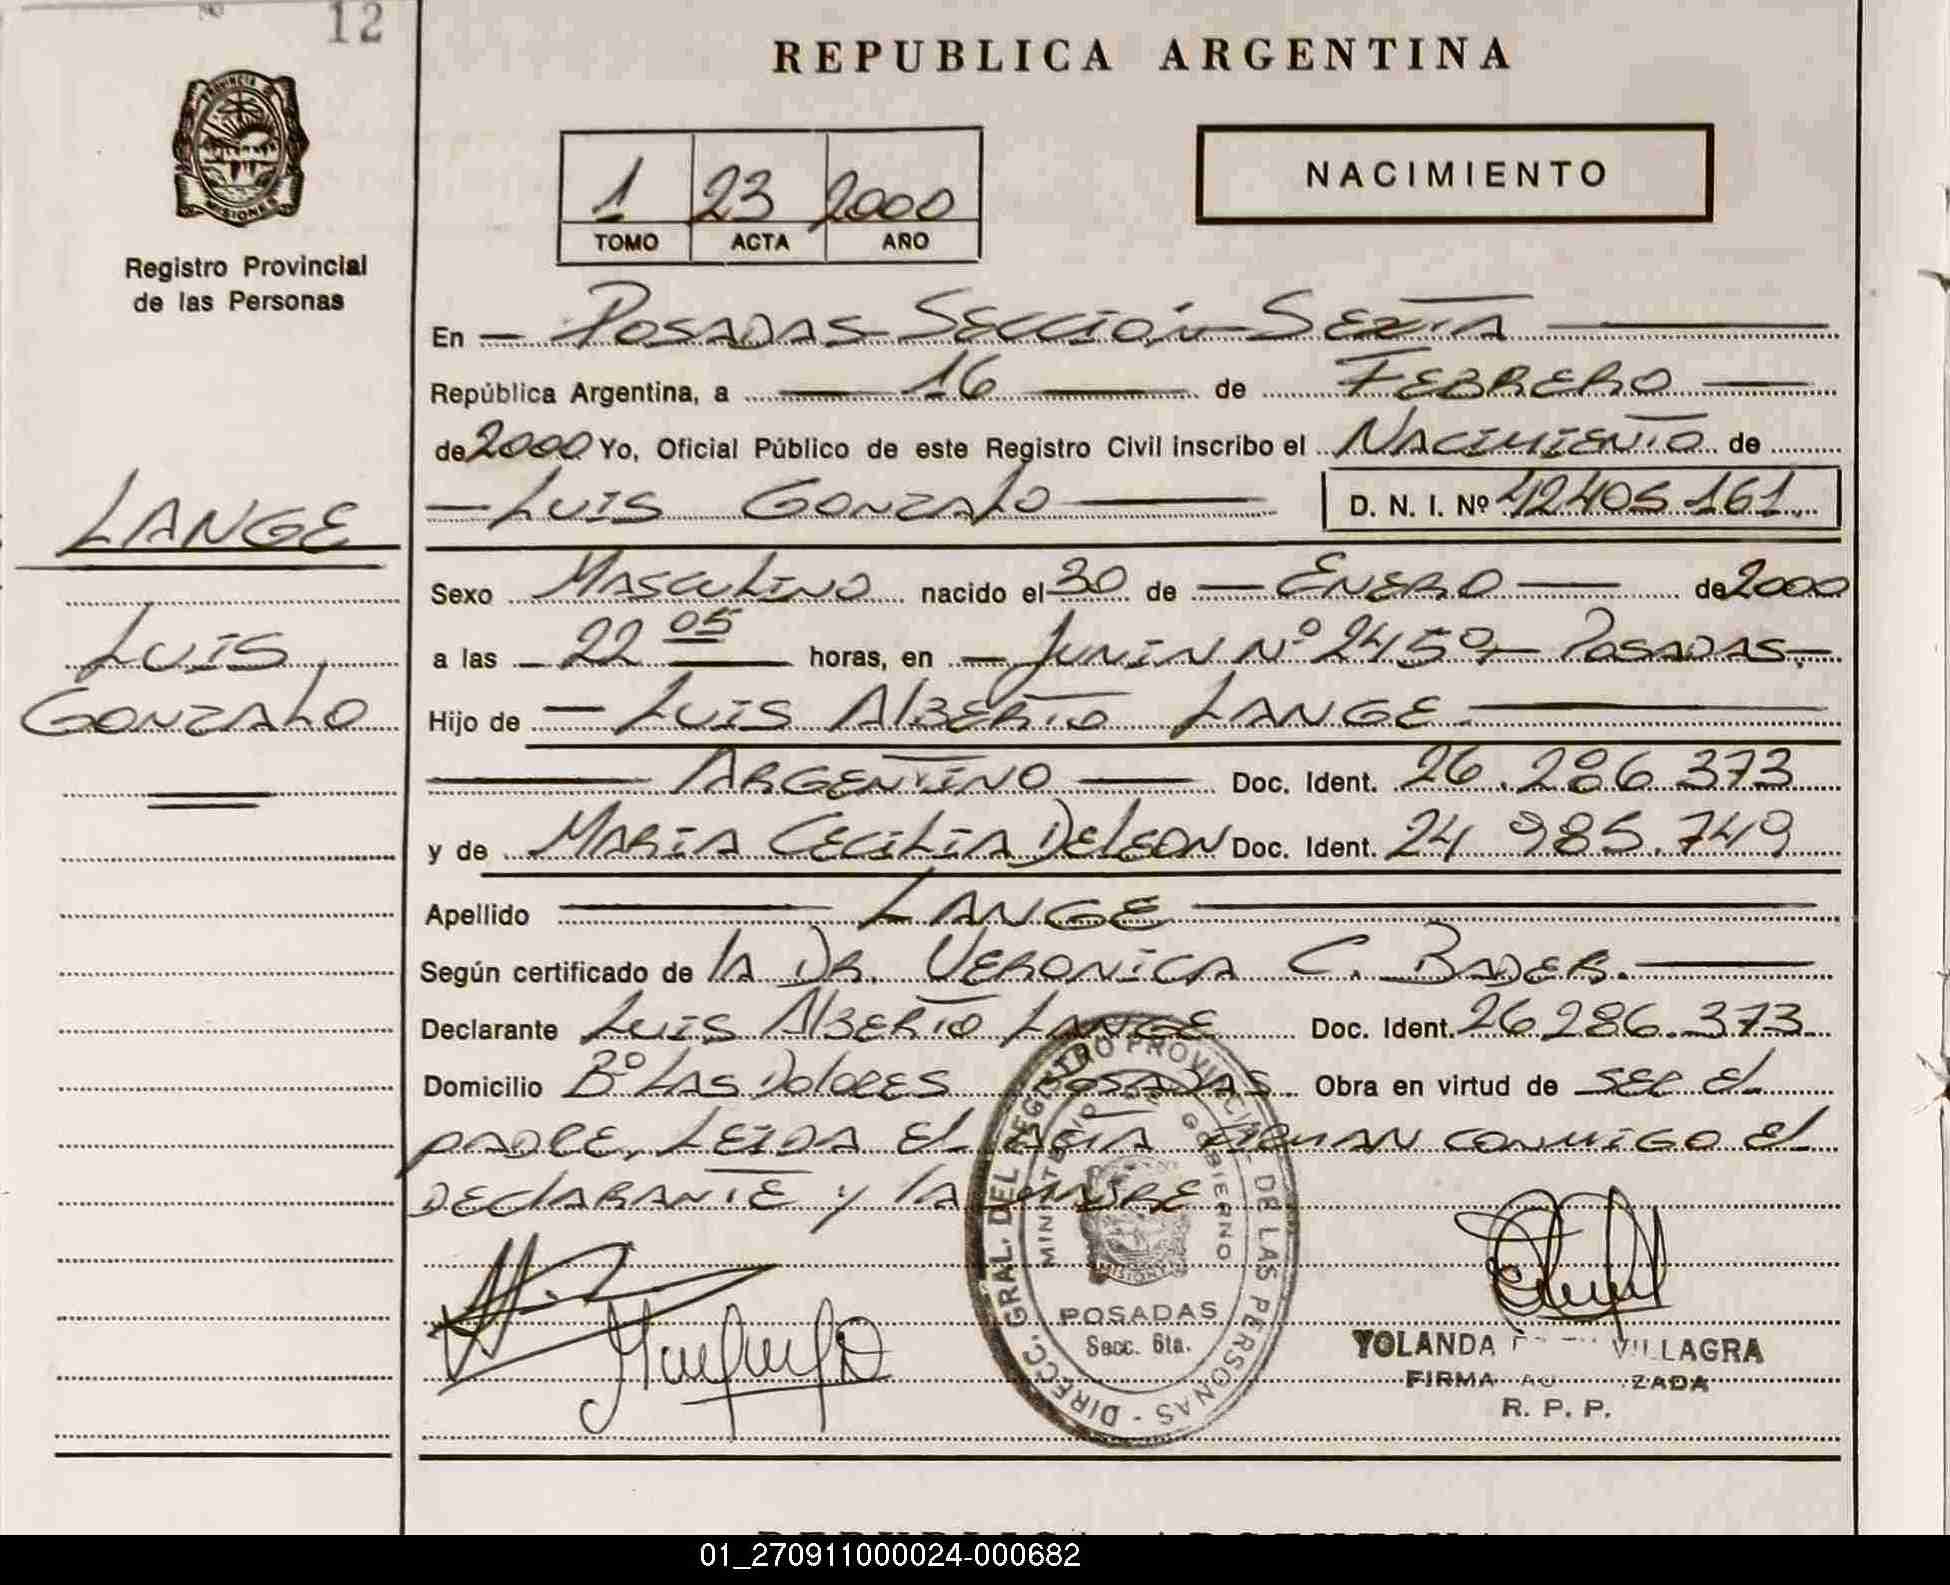 12
REPUBLICA ARGENTINA
PROVINCIA DE
MISIONES
Registro Provincial
de las Personas
1 23 2000
TOMO ACTA AÑO
NACIMIENTO
En - POSADAS SECCIÓN SEXTA
República Argentina, a 16 de FEBRERO
de 2000 Yo, Oficial Público de este Registro Civil inscribo el NACIMIENTO de
- LUIS GONZALO D. N. I. Nº 42405.161.
LANGE
LUIS
GONZALO
Sexo MASCULINO nacido el 30 de - ENERO - de 2000
a las 22 05 horas, en - JUNIN Nº 2459 - POSADAS.-
Hijo de - LUIS ALBERTO LANGE
ARGENTINO Doc. Ident. 26.286.373
y de MARIA CECILIA DELEON Doc. Ident. 24 985.749
Apellido LANGE
Según certificado de lA DR. VERONICA C. BADER.
Declarante LUIS ALBERTO LANGE Doc. Ident. 26286.373
Domicilio Bº LAS DOLORES POSADAS Obra en virtud de SER EL
PADRE, LEIDA EL ACTA FIRMAN CONMIGO EL
DECLARANTE y lA MADRE
DIRECC. GRAL. DEL REGISTRO PROVINCIAL DE LAS PERSONAS -
MINISTERIO DE GOBIERNO
MISIONES
POSADAS
Secc. 6ta.
YOLANDA VILLAGRA
FIRMA AU ZADA
R. P. P.
REPUBLICA ARGENTINA
01_270911000024-000682